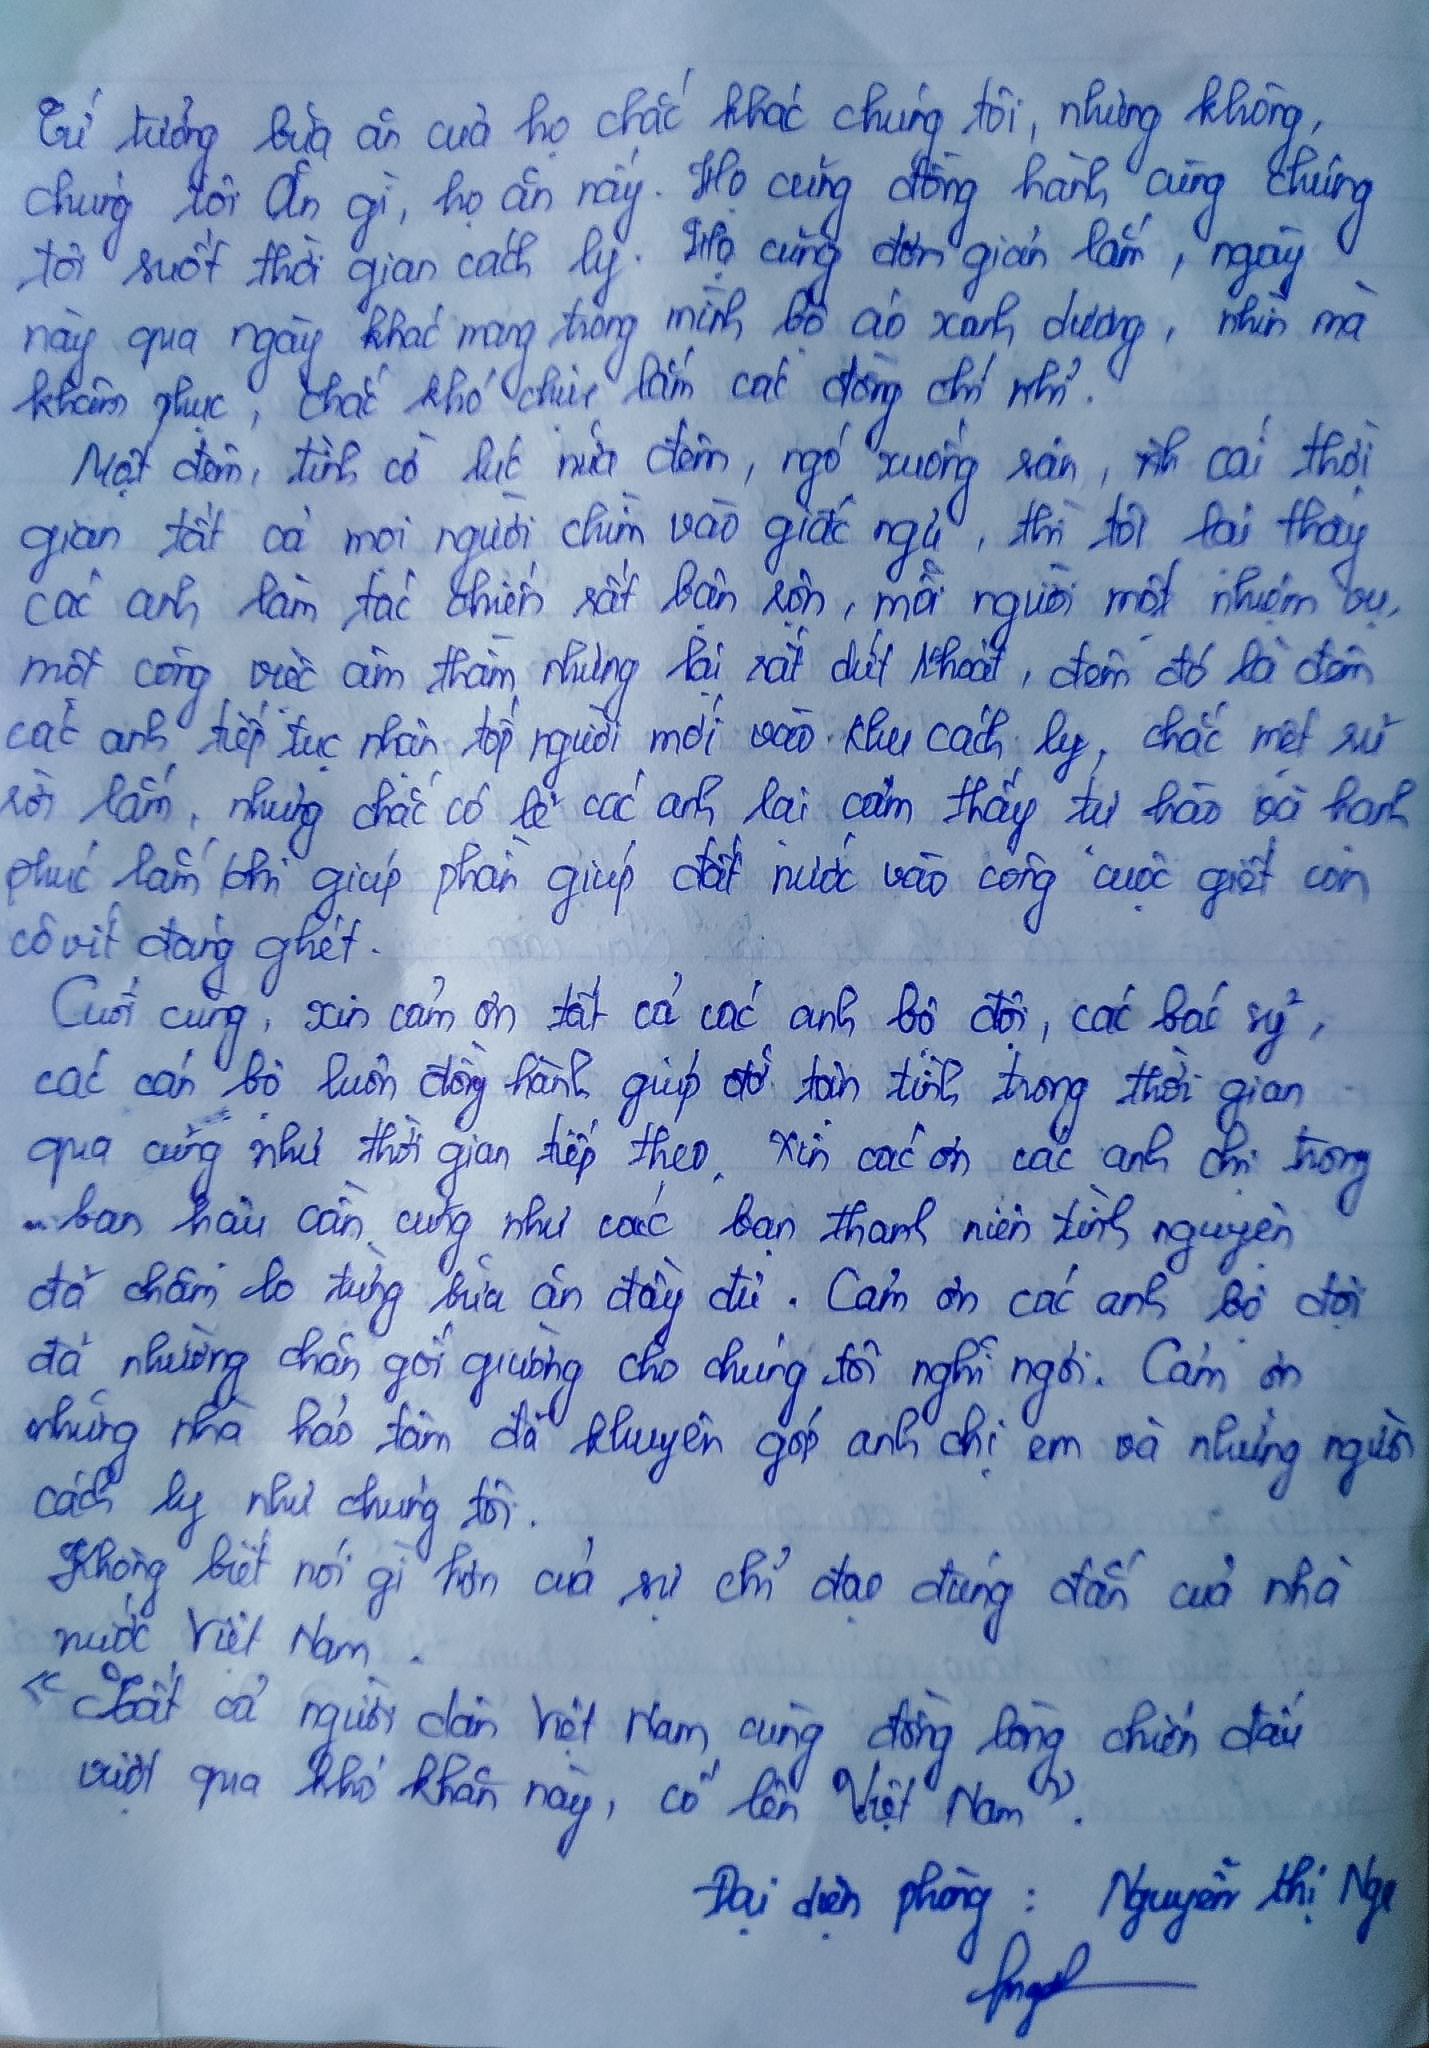 Cứ tưởng bữa ăn của họ chắc khác chúng tôi, nhưng không,
chúng tôi ăn gì, họ ăn nấy. Họ cũng đồng hành cùng chúng
tôi suốt thời gian cách ly. Họ cũng đơn giản lắm, ngày
này qua ngày khác mang trong mình bộ áo xanh dương, nhìn mà
khâm phục, chắc khó chịu lắm các đồng chí nhỉ.
Một đêm, tình cờ lúc nửa đêm, ngó xuống sân, cái thời
gian tất cả mọi người chìm vào giấc ngủ, thì tôi lại thấy
các anh làm tác chiến rất bận rộn, mỗi người một nhiệm vụ,
một công việc âm thầm nhưng lại rất dứt khoát, đêm đó là đêm
các anh tiếp tục nhận tốp người mới vào khu cách ly, chắc mệt sử
rồi lắm, nhưng chắc có lẽ các anh lại cảm thấy tự hào và hạnh
phúc lắm khi giúp phần giúp đất nước vào công cuộc giết con
cô vít đáng ghét.
Cuối cùng, xin cảm ơn tất cả các anh bộ đội, các bác sỹ,
các cán bộ luôn đồng hành giúp đỡ tận tình trong thời gian
qua cũng như thời gian tiếp theo. Xin các ơn các anh chị trong
ban hậu cần cũng như các bạn thanh niên tình nguyện
đã chăm lo từng bữa ăn đầy đủ. Cảm ơn các anh bộ đội
đã nhường chăn gối giường cho chúng tôi nghỉ ngơi. Cảm ơn
những nhà hảo tâm đã khuyên góp anh chị em và những người
cách ly như chúng tôi.
Không biết nói gì hơn của sự chỉ đạo đúng đắn của nhà
nước Việt Nam.
"Tất cả người dân Việt Nam cùng đồng lòng chiến đấu
vượt qua khó khăn này, cố lên Việt Nam".
Đại diện phòng: Nguyễn Thị